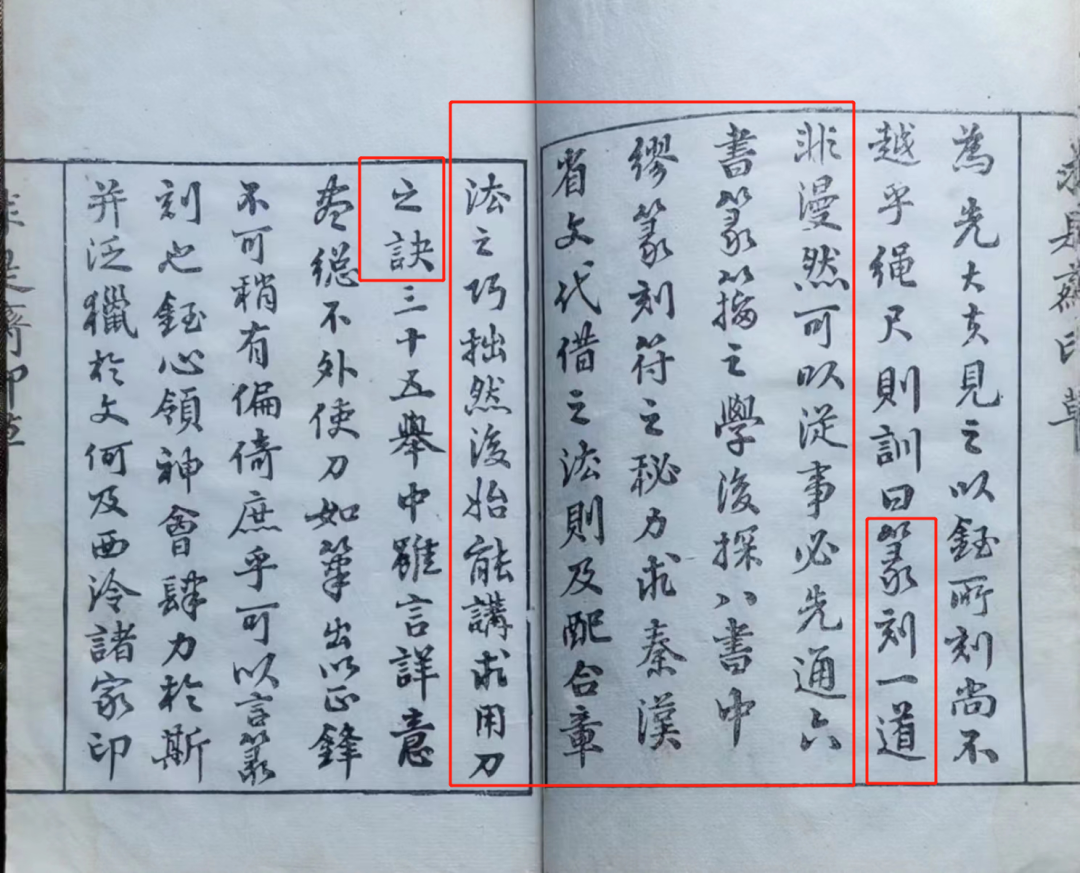 求是齋印草
為先大夫見之以鈺所刻尚不
越乎繩尺則訓曰篆刻一道
非漫然可以從事必先通六
書篆籀之學後探八書中
繆篆刻符之秘乃求秦漢
省文代借之法則及配合章
法之巧拙然後始能講求用刀
之訣三十五舉中雖言詳意
盡總不外使刀如筆出以正鋒
不可稍有偏倚庶乎可以言篆
刻也鈺心領神會肆力於斯
并泛獵於文何及西泠諸家印
求是齋印草